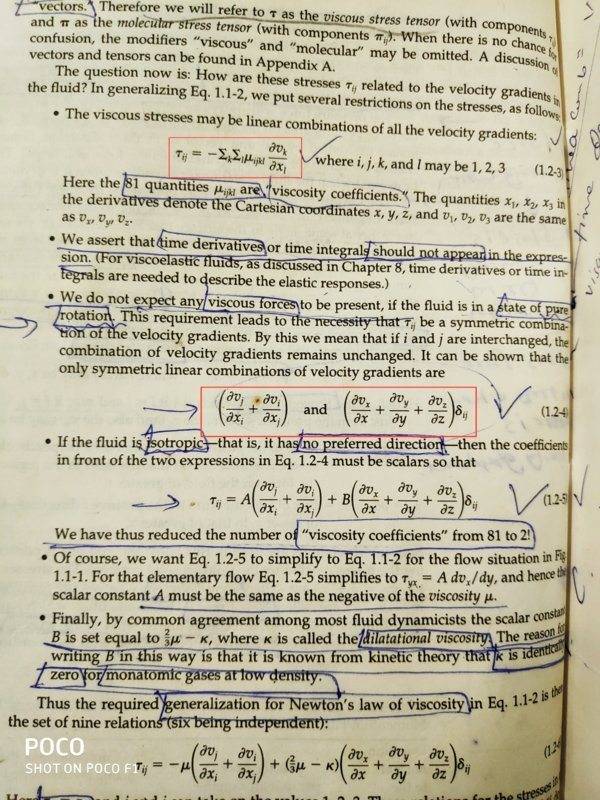 vectors.) Therefore we will refer to τ as the viscous stress tensor (with components τij)
and π as the molecular stress tensor (with components πij). When there is no chance for
confusion, the modifiers "viscous" and "molecular" may be omitted. A discussion of
vectors and tensors can be found in Appendix A.
The question now is: How are these stresses τij related to the velocity gradients in
the fluid? In generalizing Eq. 1.1-2, we put several restrictions on the stresses, as follows:
• The viscous stresses may be linear combinations of all the velocity gradients:
τij = −ΣkΣlμijkl ∂vk/∂xl where i, j, k, and l may be 1, 2, 3 (1.2-3)
Here the 81 quantities μijkl are "viscosity coefficients." The quantities x1, x2, x3 in
the derivatives denote the Cartesian coordinates x, y, z, and v1, v2, v3 are the same
as vx, vy, vz.
• We assert that time derivatives or time integrals should not appear in the expres-
sion. (For viscoelastic fluids, as discussed in Chapter 8, time derivatives or time in-
tegrals are needed to describe the elastic responses.)
• We do not expect any viscous forces to be present, if the fluid is in a state of pure
rotation. This requirement leads to the necessity that τij be a symmetric combina-
tion of the velocity gradients. By this we mean that if i and j are interchanged, the
combination of velocity gradients remains unchanged. It can be shown that the
only symmetric linear combinations of velocity gradients are
(∂vj/∂xi + ∂vi/∂xj) and (∂vx/∂x + ∂vy/∂y + ∂vz/∂z)δij (1.2-4)
• If the fluid is isotropic—that is, it has no preferred direction—then the coefficients
in front of the two expressions in Eq. 1.2-4 must be scalars so that
τij = A(∂vj/∂xi + ∂vi/∂xj) + B(∂vx/∂x + ∂vy/∂y + ∂vz/∂z)δij (1.2-5)
We have thus reduced the number of "viscosity coefficients" from 81 to 2!
• Of course, we want Eq. 1.2-5 to simplify to Eq. 1.1-2 for the flow situation in Fig
1.1-1. For that elementary flow Eq. 1.2-5 simplifies to τyx = A dvx/dy, and hence the
scalar constant A must be the same as the negative of the viscosity μ.
• Finally, by common agreement among most fluid dynamicists the scalar constant
B is set equal to ⅔μ − κ, where κ is called the dilatational viscosity. The reason for
writing B in this way is that it is known from kinetic theory that κ is identically
zero for monatomic gases at low density.
Thus the required generalization for Newton's law of viscosity in Eq. 1.1-2 is then
the set of nine relations (six being independent):
τij = −μ(∂vj/∂xi + ∂vi/∂xj) + (⅔μ − κ)(∂vx/∂x + ∂vy/∂y + ∂vz/∂z)δij
POCO
SHOT ON POCO F1